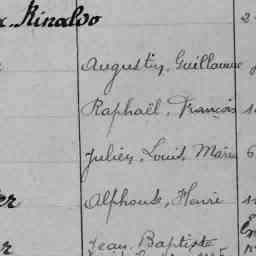 Rinaldo
Augustin, Guillaume
Raphaël, François
Julien, Louis, Marie
Alphonse, Henri
Jean, Baptiste